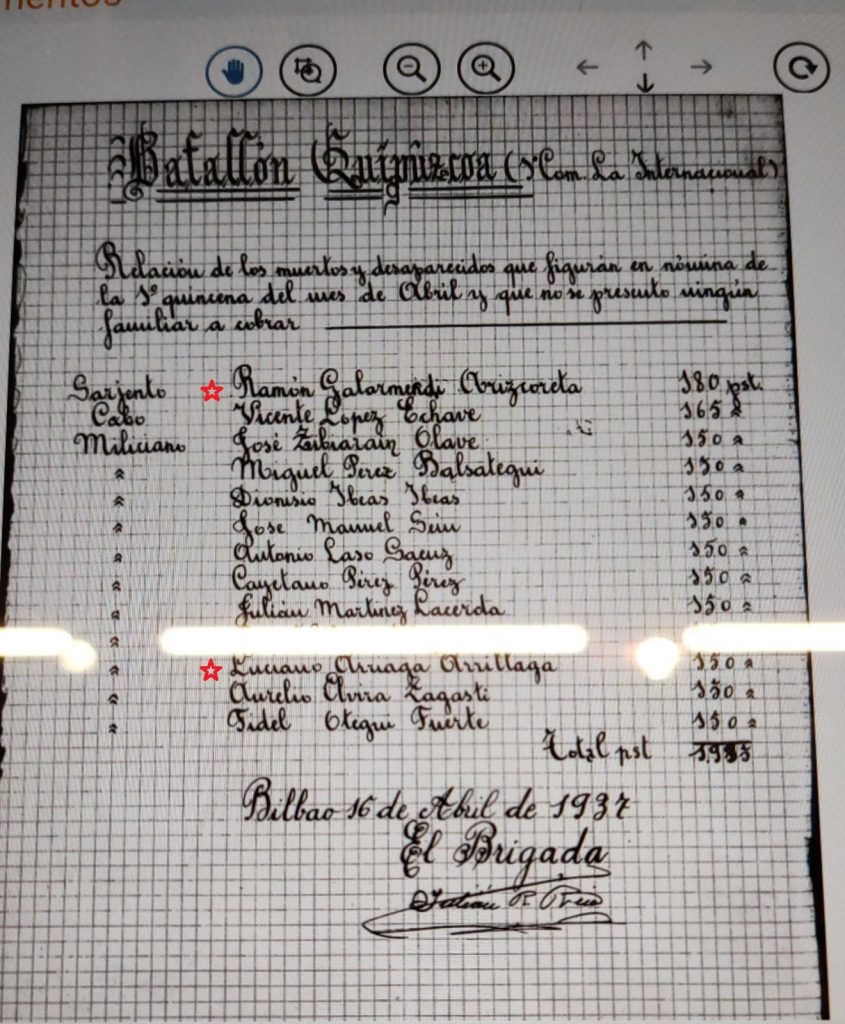 mentos
Batallón Guipúzcoa (1ª Com. La Internacional)
Relación de los muertos y desaparecidos que figurán en nómina de
la 1ª quincena del mes de Abril y que no se presento ningún
familiar a cobrar
Sarjento Ramón Galarmendi Arizcoreta 180 pst.
Cabo Vicente Lopez Echave 165 "
Miliciano José Zibiarain Olave 150 "
" Miguel Perez Balsategui 150 "
" Dionisio Ibeas Ibeas 150 "
" Jose Manuel 150 "
" Antonio Laso Saenz 150 "
" Cayetano Pérez Pérez 150 "
" Julián Martinez Lacerda 150 "
"
" Luciano Arruaga Arrillaga 150 "
" Aurelio Alvira Zagasti 150 "
" Fidel Otegui Fuerte 150 "
Total pst
Bilbao 16 de Abril de 1937
El Brigada